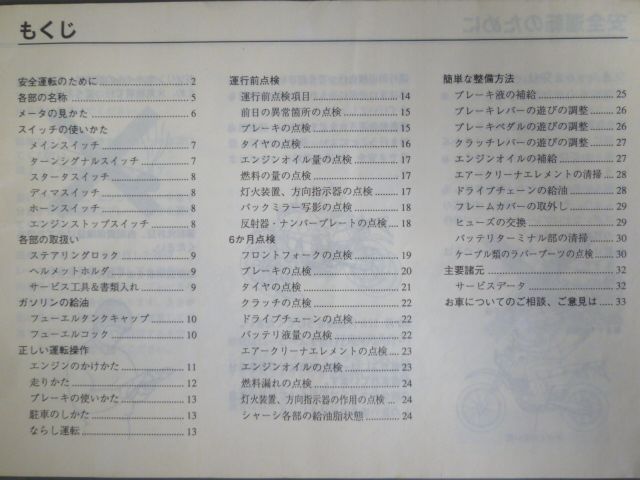 もくじ
安全運転のために 2
各部の名称 5
メータの見かた 6
スイッチの使いかた
メインスイッチ 7
ターンシグナルスイッチ 7
スタータスイッチ 8
ディマスイッチ 8
ホーンスイッチ 8
エンジンストップスイッチ 8
各部の取扱い
ステアリングロック 9
ヘルメットホルダ 9
サービス工具&書類入れ 9
ガソリンの給油
フューエルタンクキャップ 10
フューエルコック 10
正しい運転操作
エンジンのかけかた 11
走りかた 12
ブレーキの使いかた 13
駐車のしかた 13
ならし運転 13
運行前点検
運行前点検項目 14
前日の異常箇所の点検 15
ブレーキの点検 15
タイヤの点検 16
エンジンオイル量の点検 17
燃料の量の点検 17
灯火装置、方向指示器の点検 17
バックミラー写影の点検 18
反射器・ナンバープレートの点検 18
6か月点検
フロントフォークの点検 19
ブレーキの点検 20
タイヤの点検 21
クラッチの点検 22
ドライブチェーンの点検 22
バッテリ液量の点検 22
エアークリーナエレメントの点検 23
エンジンオイルの点検 23
燃料漏れの点検 24
灯火装置、方向指示器の作用の点検 24
シャーシ各部の給油脂状態 24
簡単な整備方法
ブレーキ液の補給 25
ブレーキレバーの遊びの調整 26
ブレーキペダルの遊びの調整 26
クラッチレバーの遊びの調整 27
エンジンオイルの補給 27
エアークリーナエレメントの清掃 28
ドライブチェーンの給油 28
フレームカバーの取外し 29
ヒューズの交換 29
バッテリターミナル部の清掃 30
ケーブル類のラバーブーツの点検 30
主要諸元 32
サービスデータ 32
お車についてのご相談、ご意見は 33